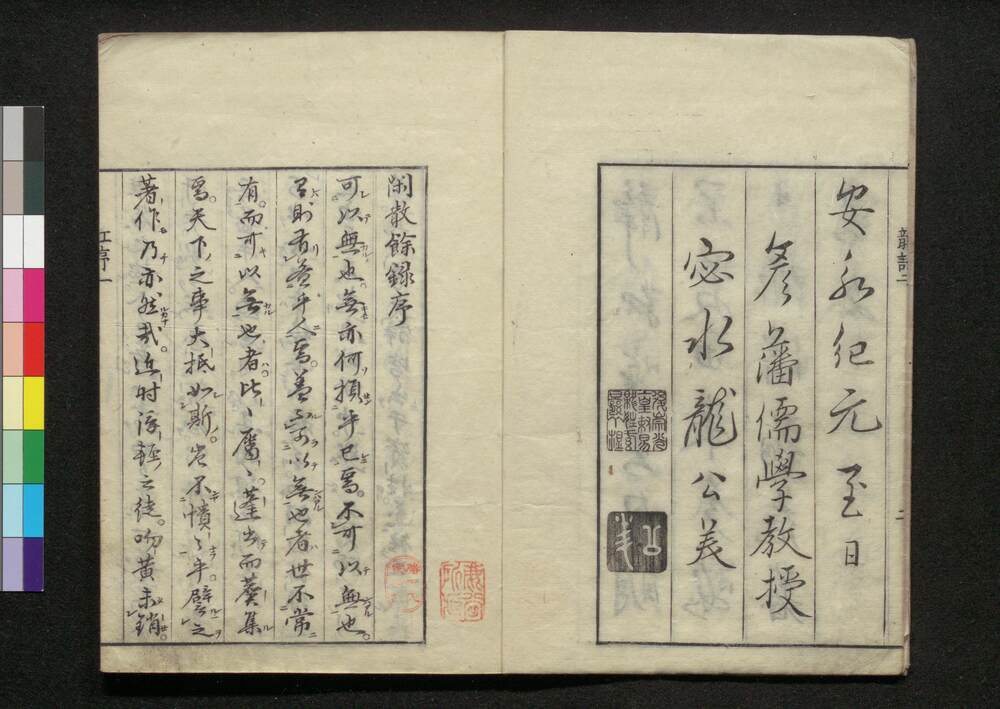 安永紀元至日
彦藩儒學教授
宓水龍公美
閑散餘録序
可以無也無亦何損乎已焉不可以無也
則有益乎人焉蓋不可以無也者世不常
有而可以無也者比比麕麕蓬出而蕢集
焉天下之事大抵如斯豈不憒々乎譬之
著作乃亦然哉近时浮躁之徒吻黄未銷
江序一